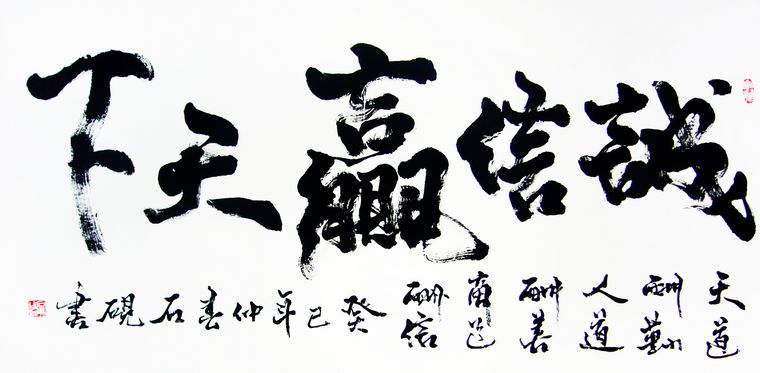 誠信贏天下
天道酬勤人道酬善商道酬信癸巳年仲春石硯書